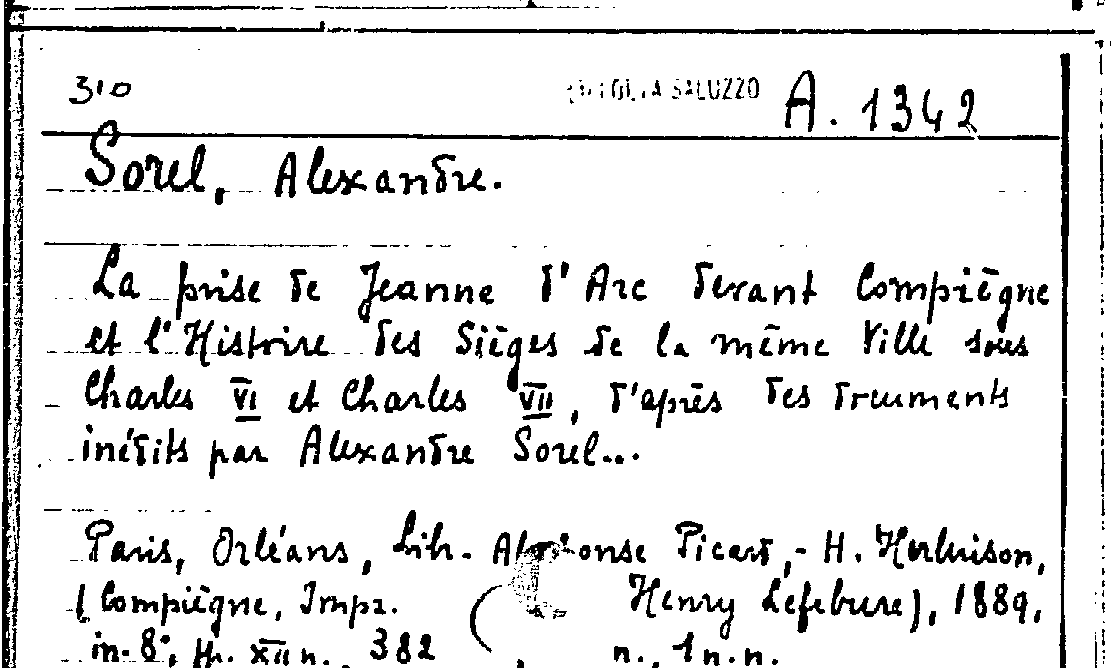 310 SALUZZO A. 1342
Sorel, Alexandre.
La prise de Jeanne d'Arc devant Compiègne
et l'Histoire des Sièges de la même Ville sous
Charles VI et Charles VII, d'après des documents
inédits par Alexandre Sorel...
Paris, Orléans, Lib. Alphonse Picard,- H. Herluison,
(Compiègne, Impr. Henry Lefebvre), 1889,
in-8°, XII n., 382 n., 1 n.n.